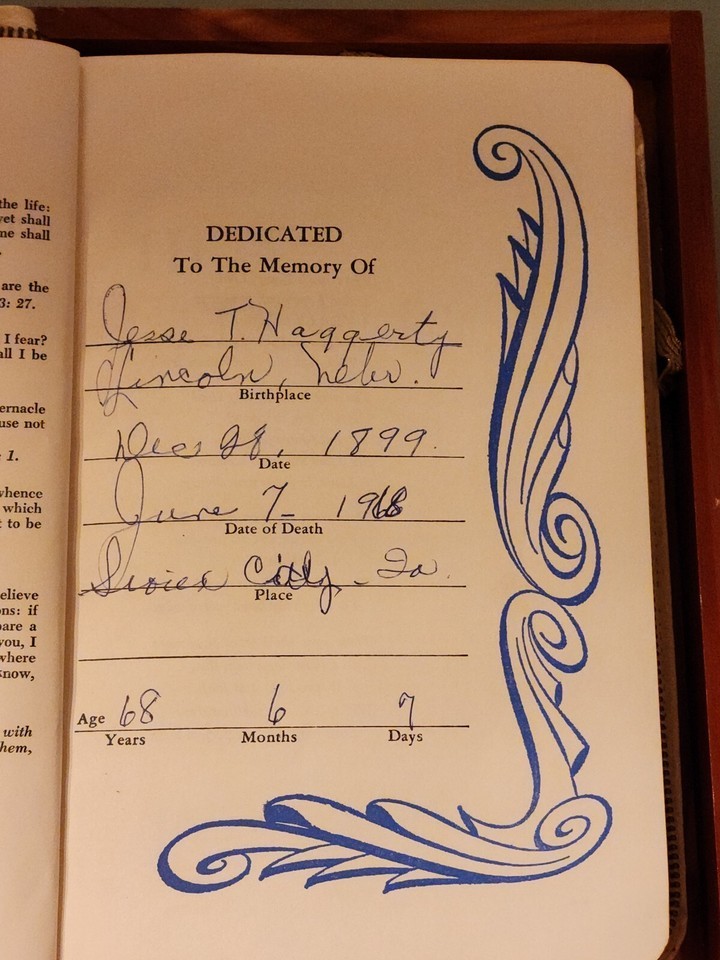 the life:
yet shall
me shall
are the
3: 27.
I fear?
all I be
ernacle
use not
1.
whence
which
t to be
elieve
ons: if
pare a
you, I
where
know,
with
hem,
DEDICATED
To The Memory Of
Jesse T. Haggerty
Lincoln, Nebr.
Birthplace
Dec 28, 1899.
Date
June 7 - 1968
Date of Death
Sioux City - Ia.
Place
Age 68 6 7
Years Months Days